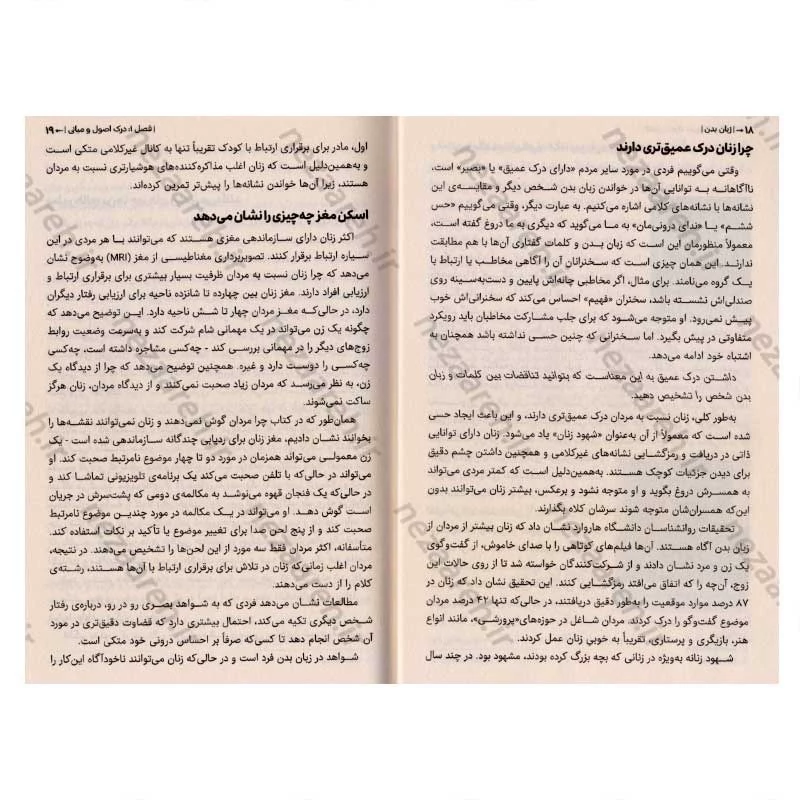 ۱۸ → | زبان بدن |
چرا زنان درک عمیق‌تری دارند
وقتی می‌گوییم فردی در مورد سایر مردم «دارای درک عمیق» یا «بصیر» است،
ناآگاهانه به توانایی آن‌ها در خواندن زبان بدن شخص دیگر و مقایسه‌ی این
نشانه‌ها با نشانه‌های کلامی اشاره می‌کنیم. به عبارت دیگر، وقتی می‌گوییم «حس
ششم» یا «ندای درونی‌مان» به ما می‌گوید که دیگری به ما دروغ گفته است،
معمولاً منظورمان این است که زبان بدن و کلمات گفتاری آن‌ها با هم مطابقت
ندارند. این همان چیزی است که سخنرانان آن را آگاهی مخاطب یا ارتباط با
یک گروه می‌نامند. برای مثال، اگر مخاطبی چانه‌اش پایین و دست‌به‌سینه روی
صندلی‌اش نشسته باشد، سخنران «فهیم» احساس می‌کند که سخنرانی‌اش خوب
پیش نمی‌رود. او متوجه می‌شود که برای جلب مشارکت مخاطبان باید رویکرد
متفاوتی در پیش بگیرد. اما سخنرانی که چنین حسی نداشته باشد همچنان به
اشتباه خود ادامه می‌دهد.
داشتن درک عمیق به این معناست که بتوانید تناقضات بین کلمات و زبان
بدن شخص را تشخیص دهید.
به‌طور کلی، زنان نسبت به مردان درک عمیق‌تری دارند، و این باعث ایجاد حسی
شده است که معمولاً از آن به‌عنوان «شهود زنان» یاد می‌شود. زنان دارای توانایی
ذاتی در دریافت و رمزگشایی نشانه‌های غیرکلامی و همچنین داشتن چشم دقیق
برای دیدن جزئیات کوچک هستند. به‌همین‌دلیل است که کمتر مردی می‌تواند
به همسرش دروغ بگوید و او متوجه نشود و برعکس، بیشتر زنان می‌توانند بدون
این‌که همسران‌شان متوجه شوند سرشان کلاه بگذارند.
تحقیقات روانشناسان دانشگاه هاروارد نشان داد که زنان بیشتر از مردان از
زبان بدن آگاه هستند. آن‌ها فیلم‌های کوتاهی را با صدای خاموش، از گفت‌وگوی
یک زن و مرد نشان دادند و از شرکت‌کنندگان خواسته شد تا از روی حالات این
زوج، آن‌چه را که اتفاق می‌افتد رمزگشایی کنند. این تحقیق نشان داد که زنان در
۸۷ درصد موارد موقعیت را به‌طور دقیق دریافتند، در حالی‌که تنها ۴۲ درصد مردان
موضوع گفت‌وگو را درک کردند. مردان شاغل در حوزه‌های «پرورشی»، مانند انواع
هنر، بازیگری و پرستاری، تقریباً به خوبی زنان عمل کردند.
شهود زنانه به‌ویژه در زنانی که بچه بزرگ کرده بودند، مشهود بود. در چند سال
| فصل ۱: درک اصول و مبانی | ← ۱۹
اول، مادر برای برقراری ارتباط با کودک تقریباً تنها به کانال غیرکلامی متکی است
و به‌همین‌دلیل است که زنان اغلب مذاکره‌کننده‌های هوشیارتری نسبت به مردان
هستند، زیرا آن‌ها خواندن نشانه‌ها را پیش‌تر تمرین کرده‌اند.
اسکن مغز چه‌چیزی را نشان می‌دهد
اکثر زنان دارای سازماندهی مغزی هستند که می‌توانند با هر مردی در این
سیاره ارتباط برقرار کنند. تصویربرداری مغناطیسی از مغز (MRI) به‌وضوح نشان
می‌دهد که چرا زنان نسبت به مردان ظرفیت بسیار بیشتری برای برقراری ارتباط و
ارزیابی افراد دارند. مغز زنان بین چهارده تا شانزده ناحیه برای ارزیابی رفتار دیگران
دارد، در حالی‌که مغز مردان چهار تا شش ناحیه دارد. این توضیح می‌دهد که
چگونه یک زن می‌تواند در یک مهمانی شام شرکت کند و به‌سرعت وضعیت روابط
زوج‌های دیگر را در مهمانی بررسی کند - چه‌کسی مشاجره داشته است، چه‌کسی
چه‌کسی را دوست دارد و غیره. همچنین توضیح می‌دهد که چرا از دیدگاه یک
زن، به نظر می‌رسد که مردان زیاد صحبت نمی‌کنند و از دیدگاه مردان، زنان هرگز
ساکت نمی‌شوند.
همان‌طور که در کتاب چرا مردان گوش نمی‌دهند و زنان نمی‌توانند نقشه‌ها را
بخوانند نشان دادیم، مغز زنان برای ردیابی چندگانه سازماندهی شده است - یک
زن معمولی می‌تواند همزمان در مورد دو تا چهار موضوع نامرتبط صحبت کند. او
می‌تواند در حالی‌که با تلفن صحبت می‌کند یک برنامه‌ی تلویزیونی تماشا کند و
در حالی‌که یک فنجان قهوه می‌نوشد به مکالمه‌ی دومی که پشت‌سرش در جریان
است گوش دهد. او می‌تواند در یک مکالمه در مورد چندین موضوع نامرتبط
صحبت کند و از پنج لحن صدا برای تغییر موضوع یا تأکید بر نکات استفاده کند.
متأسفانه، اکثر مردان فقط سه مورد از این لحن‌ها را تشخیص می‌دهند. در نتیجه،
مردان اغلب زمانی‌که زنان در تلاش برای برقراری ارتباط با آن‌ها هستند، رشته‌ی
کلام را از دست می‌دهند.
مطالعات نشان می‌دهد فردی که به شواهد بصری رو در رو، درباره‌ی رفتار
شخص دیگری تکیه می‌کند، احتمال بیشتری دارد که قضاوت دقیق‌تری در مورد
آن شخص انجام دهد تا کسی‌که صرفاً بر احساس درونی خود متکی است.
شواهد در زبان بدن فرد است و در حالی‌که زنان می‌توانند ناخودآگاه این‌کار را
nezaareh.ir